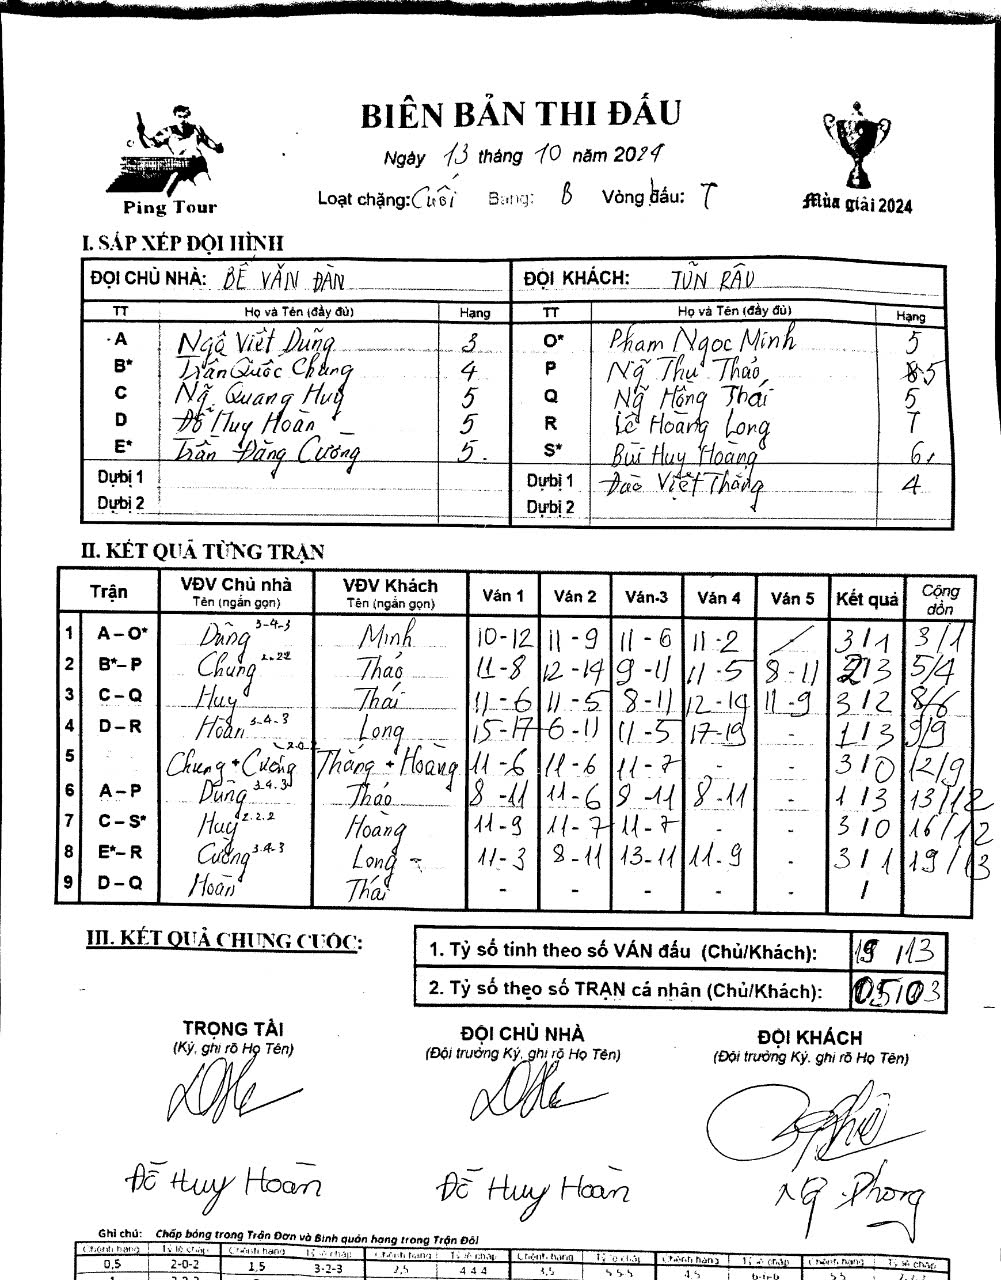 BIÊN BẢN THI ĐẤU
Ngày 13 tháng 10 năm 2024
Ping Tour
Loạt chặng: Cuối Bảng: B Vòng đấu: T
Mùa giải 2024
I. SẮP XẾP ĐỘI HÌNH
ĐỘI CHỦ NHÀ: BẾ VĂN ĐÀN ĐỘI KHÁCH: TUẤN RÂU
TT Họ và Tên (đầy đủ) Hạng TT Họ và Tên (đầy đủ) Hạng
A Ngô Viết Dũng 3 O* Phạm Ngọc Minh 5
B* Trần Quốc Chung 4 P Ng̃ Thu Thảo 5
C Ng̃ Quang Huy 5 Q Ng̃ Hồng Thái 5
D Đỗ Huy Hoàn 5 R Lê Hoàng Long 7
E* Trần Đăng Cường 5. S* Bùi Huy Hoàng 6.
Dự bị 1 Dự bị 1 Đào Việt Thắng 4
Dự bị 2 Dự bị 2
II. KẾT QUẢ TỪNG TRẬN
Trận VĐV Chủ nhà Tên (ngắn gọn) VĐV Khách Tên (ngắn gọn) Ván 1 Ván 2 Ván 3 Ván 4 Ván 5 Kết quả Cộng dồn
1 A – O* Dũng 3-4-3 Minh 10-12 11-9 11-6 11-2 / 3/1 3/1
2 B* – P Chung 2.22 Thảo 11-8 12-14 9-11 11-5 8-11 2/3 5/4
3 C – Q Huy Thái 11-6 11-5 8-11 12-14 11-9 3/2 8/6
4 D – R Hoàn 3-4-3 Long 15-17 6-11 11-5 17-19 - 1/3 9/9
5 Chung + Cường 2.0.2 Thắng + Hoàng 11-6 11-6 11-7 - - 3/0 12/9
6 A – P Dũng 3.4.3 Thảo 8-11 11-6 9-11 8-11 - 1/3 13/12
7 C – S* Huy 2.2.2 Hoàng 11-9 11-7 11-7 - - 3/0 16/12
8 E* – R Cường 3.4.3 Long 11-3 8-11 13-11 11-9 - 3/1 19/13
9 D – Q Hoàn Thái - - - - - /
III. KẾT QUẢ CHUNG CUỘC:
1. Tỷ số tính theo số VÁN đấu (Chủ/Khách): 19/13
2. Tỷ số theo số TRẬN cá nhân (Chủ/Khách): 05/03
TRỌNG TÀI ĐỘI CHỦ NHÀ ĐỘI KHÁCH
(Ký, ghi rõ Họ Tên) (Đội trưởng Ký, ghi rõ Họ Tên) (Đội trưởng Ký, ghi rõ Họ Tên)
Đỗ Huy Hoàn Đỗ Huy Hoàn Ng̃ Phong
Ghi chú: Chấp bóng trong Trận Đơn và Bình quân hạng trong Trận Đôi
Chênh hạng Tỷ lệ chấp Chênh hạng Tỷ lệ chấp Chênh hạng Tỷ lệ chấp Chênh hạng Tỷ lệ chấp Chênh hạng Tỷ lệ chấp Chênh hạng Tỷ lệ chấp
0,5 2-0-2 1,5 3-2-3 2,5 4-4-4 3,5 5-5-5 4,5 6-6-6 5,5